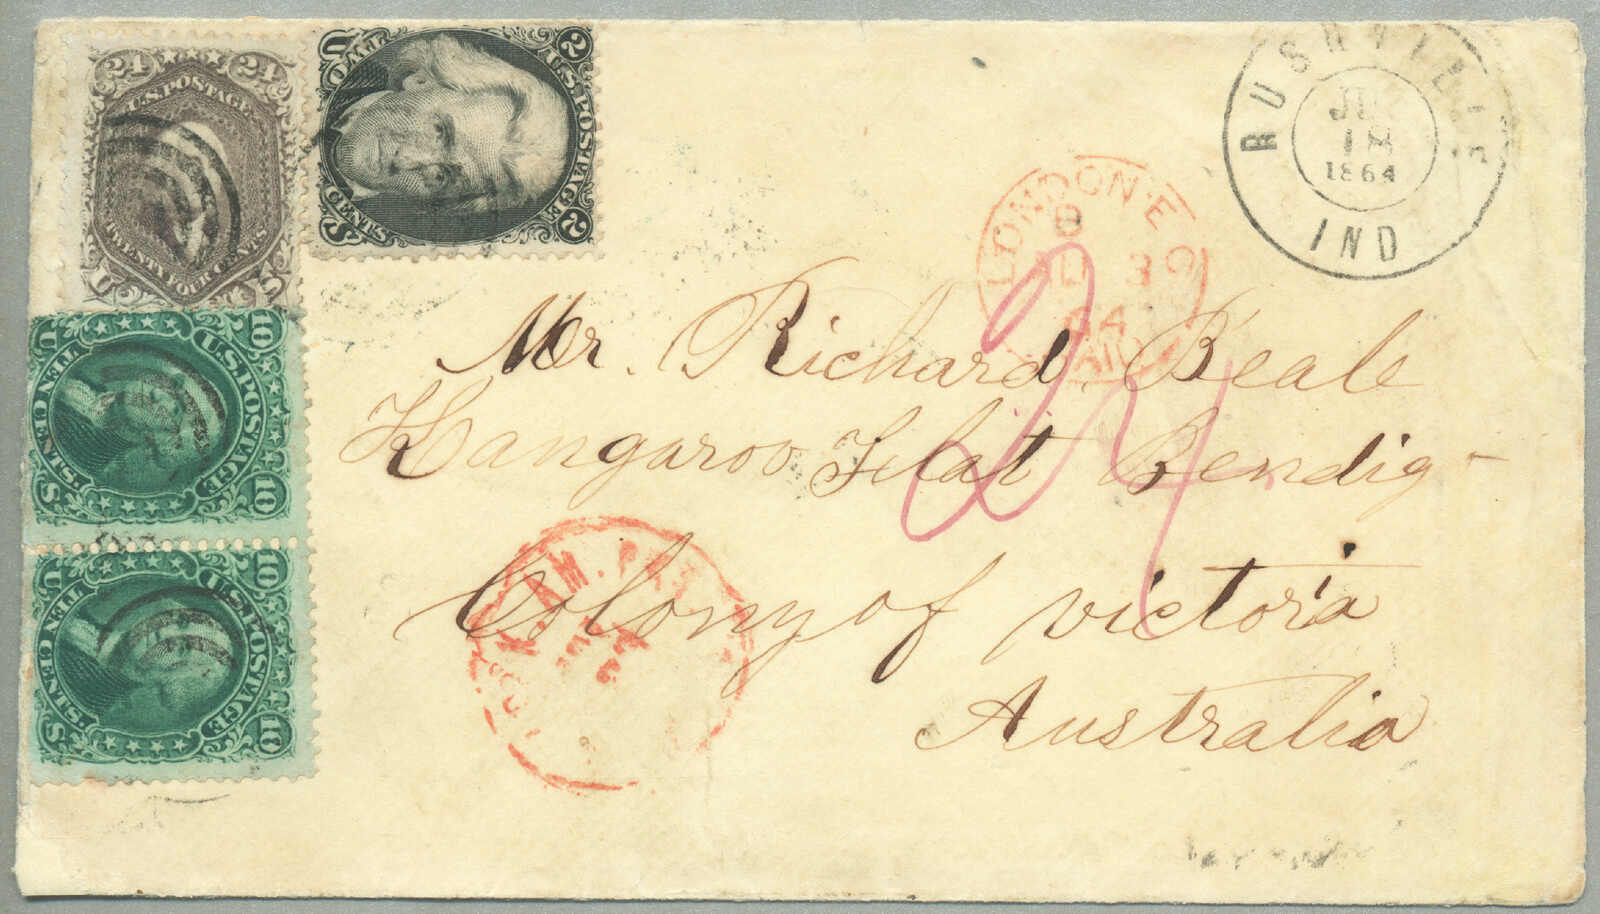 24 24
U.S. POSTAGE
TWENTY FOUR CENTS
U S
U TWO 2
U.S. POSTAGE
S CENTS 2
RUSHVILLE
18
1864
IND
LONDON E C
3
64
PAID
Mr. Richard Beale
Kangaroo Flat Bendig-
Colony of victoria
Australia
24
10 U.S. POSTAGE 10
U. TEN CENTS. S
10 U.S. POSTAGE 10
U. TEN CENTS. S
AM. PKT